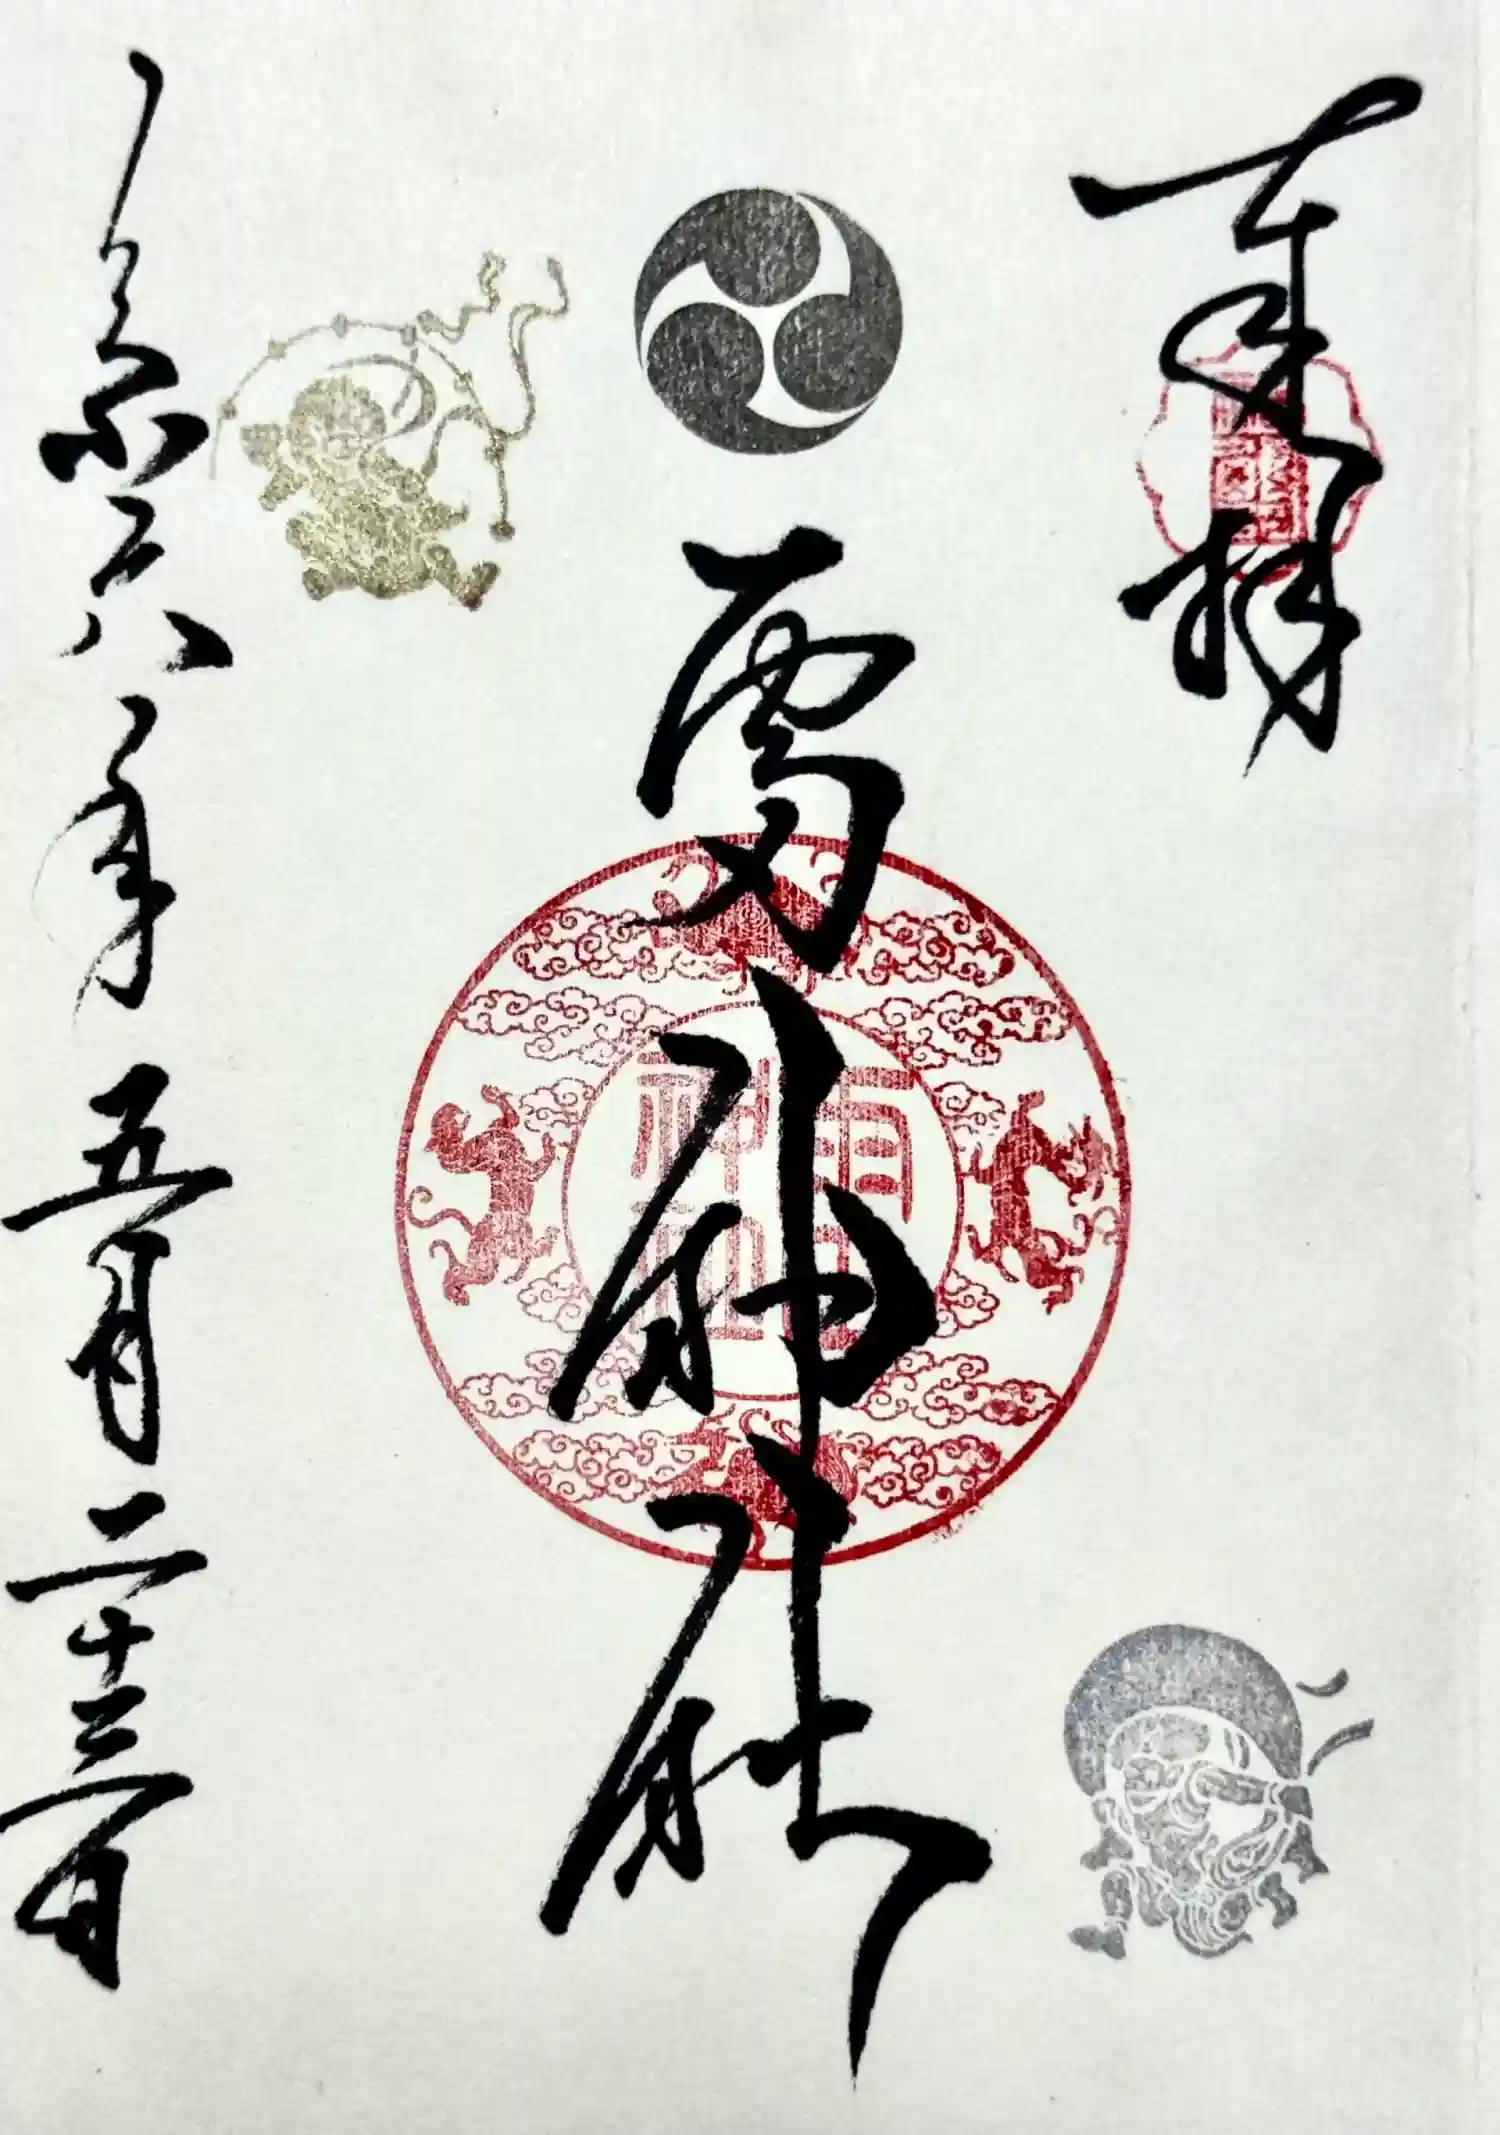 奉拝
雷神社
令和六年五月二十三日
雷神社